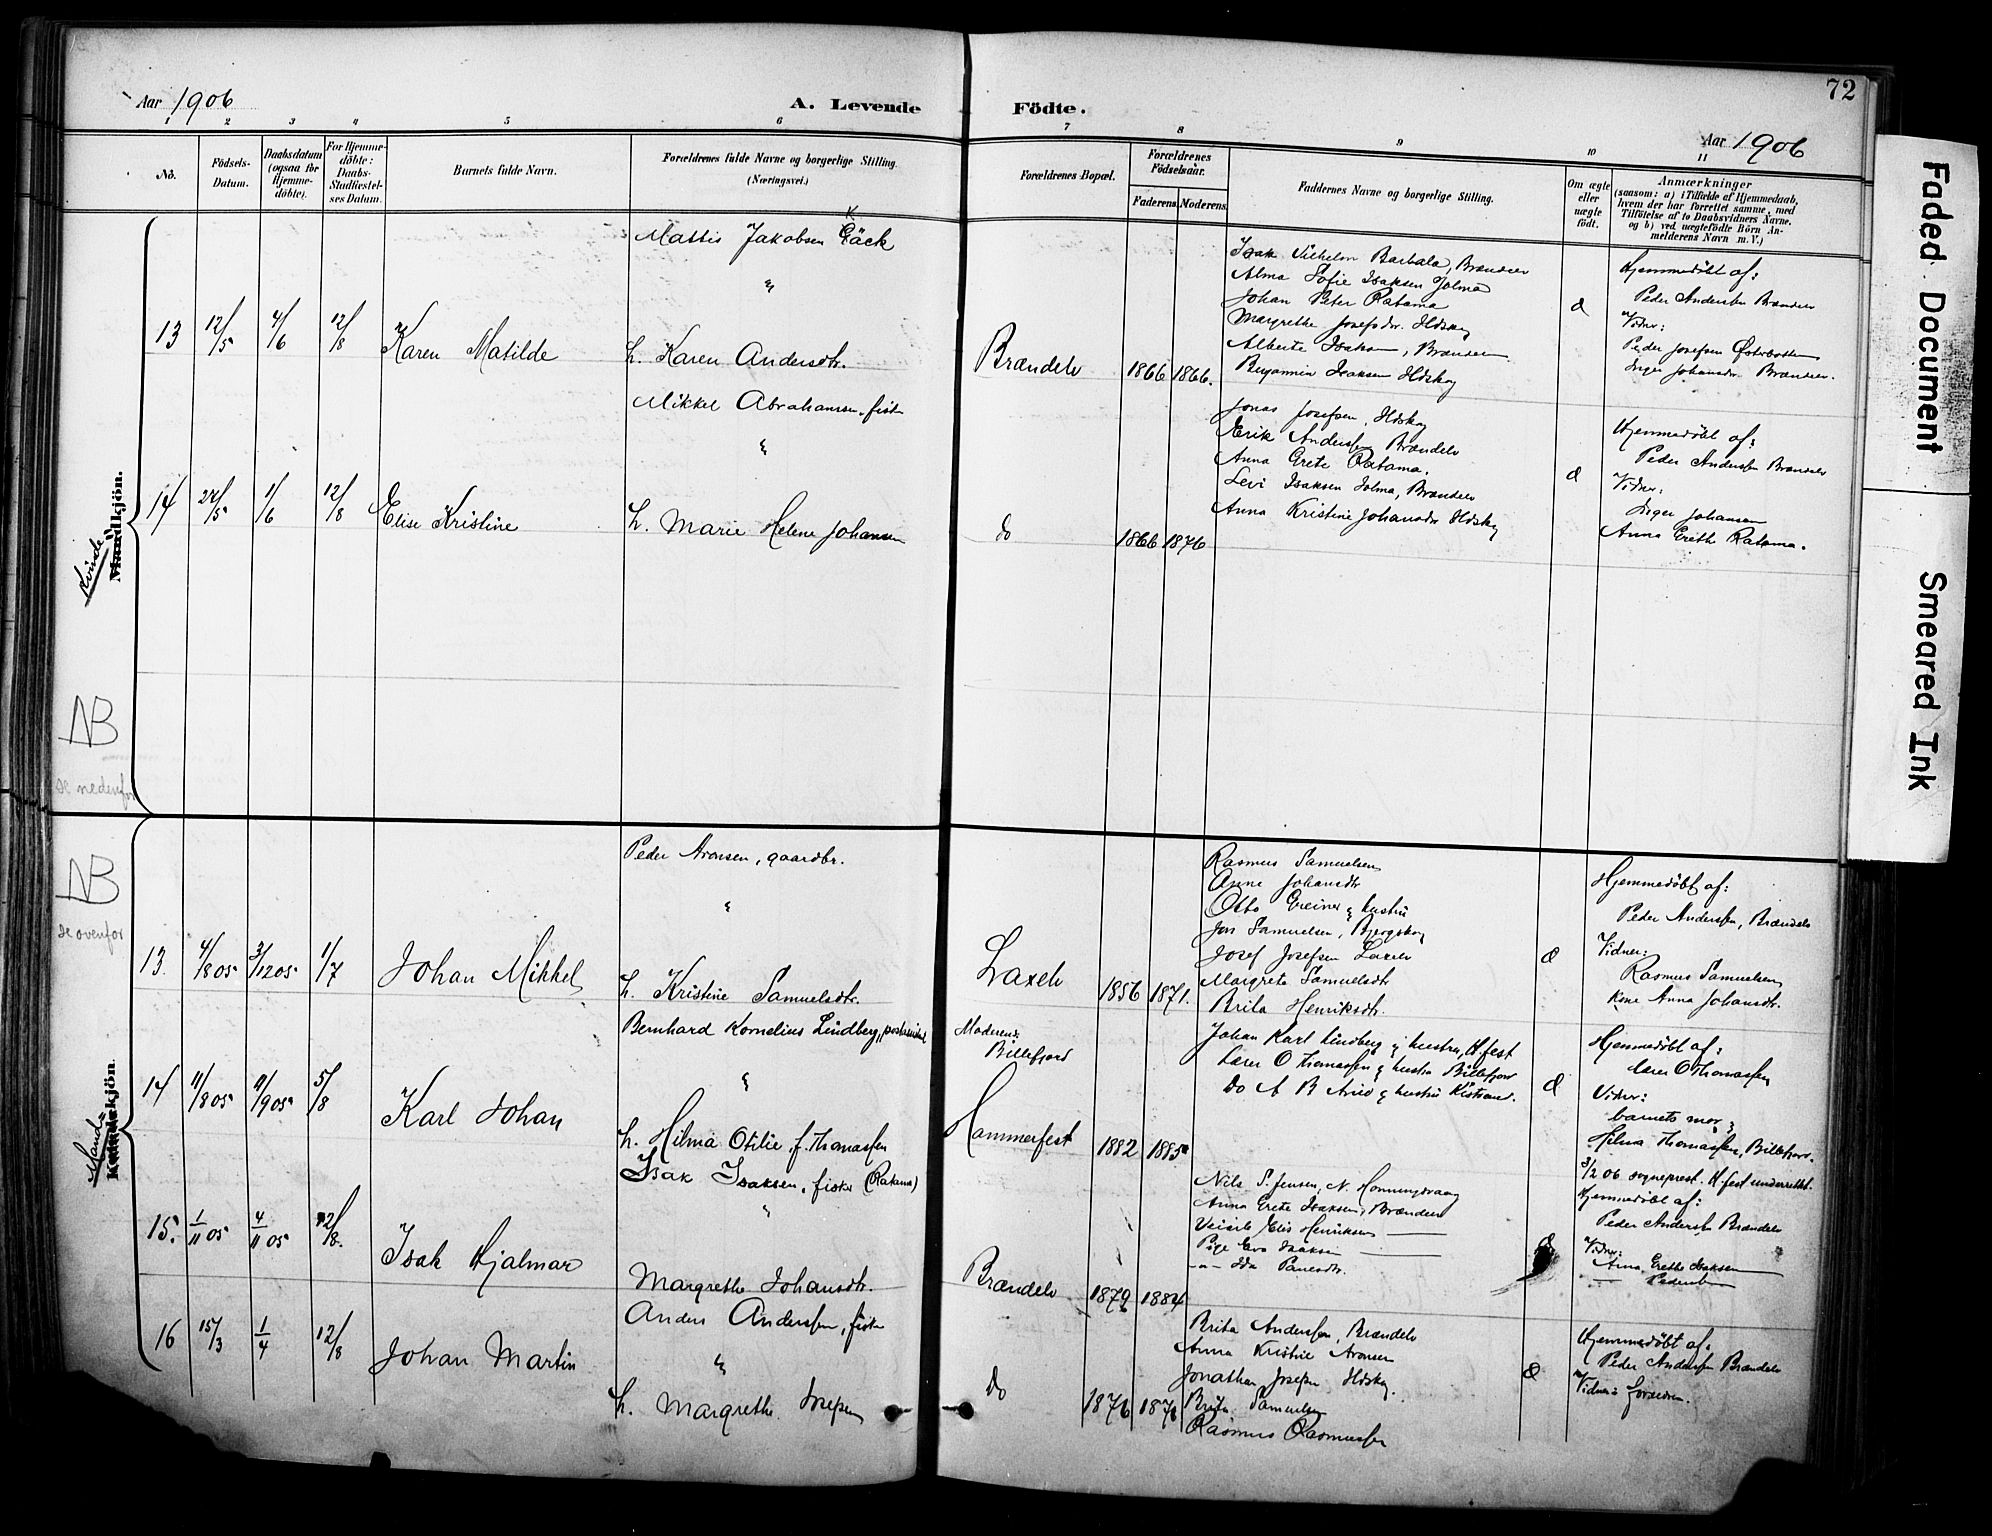 72
Aar 1906
A. Levende Födte.
Aar 1906
1 2 3 4 5 6 7 8 9 10 11
No.
Födsels-
Datum.
Daabsdatum
(ogsaa för
Hjemme-
döbte).
For Hjemme-
döbte:
Daabs-
Stadfæstel-
ses Datum.
Barnets fulde Navn.
Forældrenes fulde Navne og borgerlige Stilling.
(Næringsvei.)
Forældrenes Bopæl.
Forældrenes
Födselsaar.
Faderens. Moderens.
Faddernes Navne og borgerlige Stilling.
Om ægte
eller
uægte
födt.
Anmærkninger
(saasom: a) i Tilfælde af Hjemmedaab,
hvem der har forrettet samme, med
Tilföielse af to Daabsvidners Navne,
og b) ved uægtefödte Börn An-
melderens Navn m. V.)
Kvinde
Mandkjön.
NB
se nedenfor
13 12/5 4/6 12/8 Karen Matilde
Mattis Jakobsen Gäck
K
"
h. Karen Andersdtr.
Brændelv 1866 1866.
Isak Vilhelm Barbala, Brændelv
Alma Sofie Isaksen Jolma
Johan Peter Ratama
Margrethe Josefsdr. Hdskog
Alberte Isaksen, Brændelv
Benjamin Isaksen Hdskog
Hjemmedöbt af:
Peder Andersen Brændelv
Vidner:
Peder Josefsen Østerbotten
Inger Johansdr. Brændelv.
14 24/5 1/6 12/8 Elise Kristine
Mikkel Abrahamsen, fisker
"
h. Marie Helene Johansen
do 1866 1876
Jonas Josefsen, Hdskog
Erik Andersen Brændelv
Anna Grete Ratama.
Levi Isaksen Jolma, Brændelv
Anna Kristine Johansdr Hdskog
Hjemmedöbt af:
Peder Andersen Brændelv
Vidner:
Inger Johansen
Anna Grethe Ratama.
NB
se ovenfor
Mand
Kvindekjön.
13. 4/8 05 3/12 05 1/7 Johan Mikkel
Peder Aronsen, gaardbr.
"
h. Kristine Samuelsdtr.
Laxelv 1856 1871.
Rasmus Samuelsen
Anne Johansdtr
Otto Greiner & hustru
Jon Samuelsen, Bjergskog
Josef Josefsen Laxelv
Margreta Samuelsdtr
Brita Henriksdtr.
Hjemmedöbt af:
Peder Andersen, Brændelv
Vidner:
Rasmus Samuelsen
Kone Anna Johansdtr.
14 11/8 05 11/9 05 5/8 Karl Johan
Bernhard Kornelius Lindberg,
"
h. Hilma Otilie f. Thomassen
Moderens:
Billefjord
Hammerfest 1882 1885
Johan Karl Lindberg & hustru, H.fest
Lærer O Thomassen & hustru Billefjord
Do A B & hustru Kistrand.
Hjemmedöbt af:
Lærer O Thomassen
Vidner:
barnets mor &
Hilma Thomassen, Billefjord.
3/2 06 sogneprest. H.fest underrettet.
15. 1/11 05 4/11 05 12/8. Isak Hjalmar
Isak Isaksen, fisker (Ratama)
"
Margrethe Johansdtr.
Brændelv 1879 1884
Nils P. Jensen, N. Honningsvaag
Anna Grete Isaksen, Brændelv
Elis Henriksen —
Pige Eva Isaksen —
-"- Ida
Hjemmedöbt af:
Peder Andersen Brændelv
Vidner:
Anna Grethe Isaksen
— Pedersen
16 15/3 1/4 12/8 Johan Martin
Anders Andersen, fisker
"
h. Margrethe Josefsen
do 1876 1876
Brita Andersen, Brændelv
Anna Kristine Aronsen
Jonathan Josefsen Hdskog.
Brita Samuelsen
Rasmus Rasmussen
Hjemmedöbt af:
Peder Andersen Brændelv
Vidner: forældrene.
Faded Document
Smeared Ink